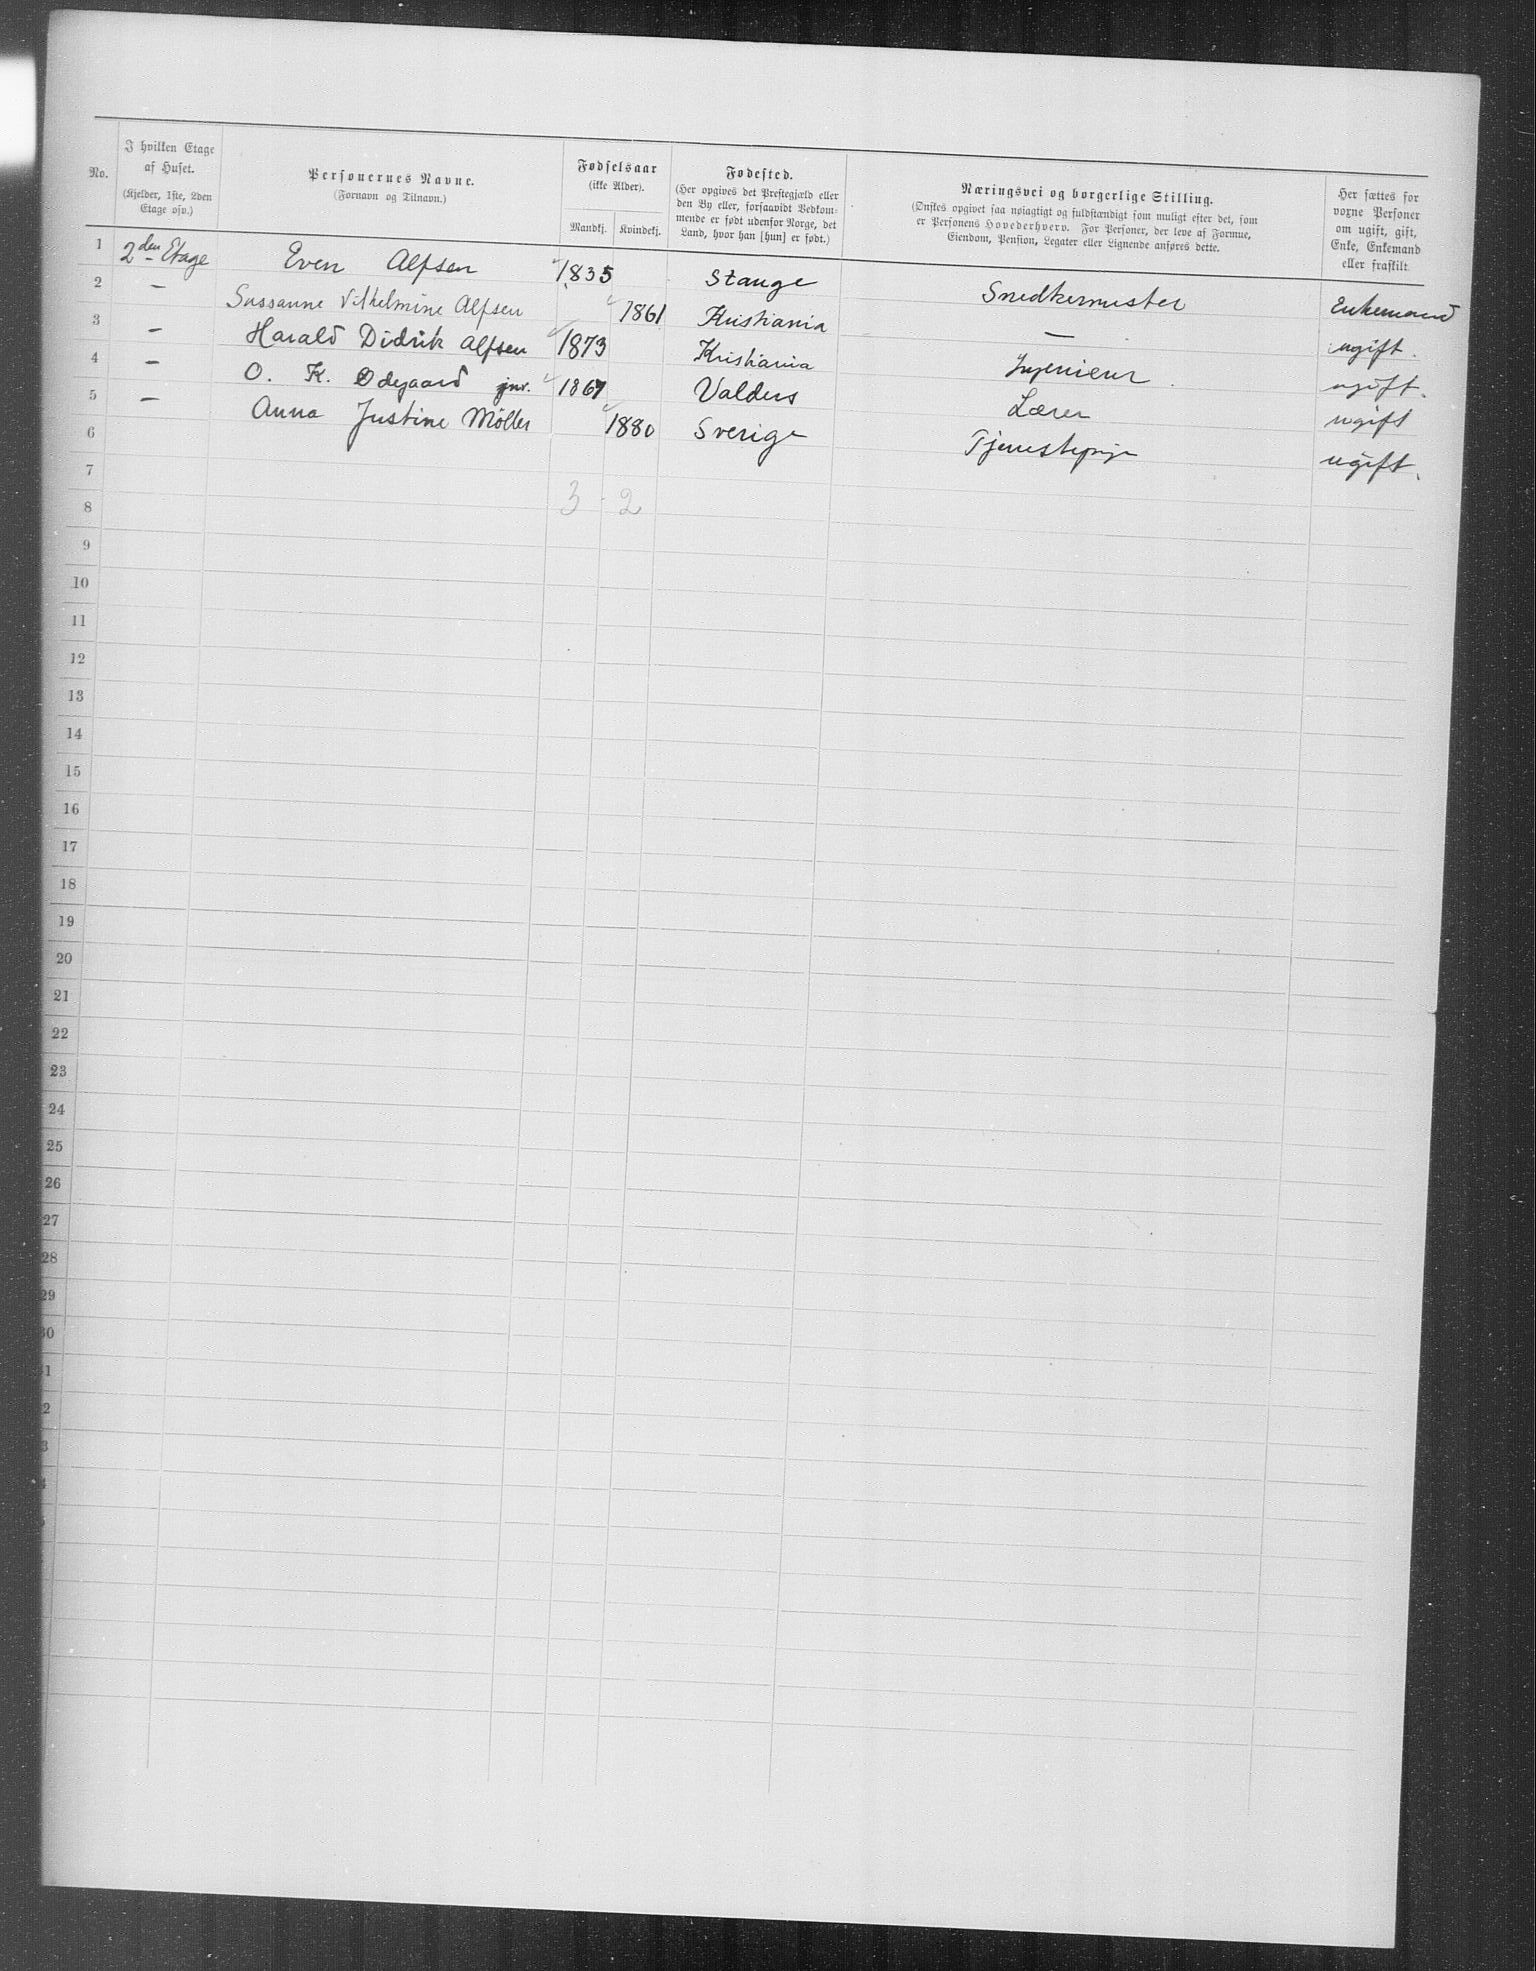 No.
I hvilken Etage
af Huset.
(Kjelder, 1ste, 2den
Etage osv.)
Personernes Navne.
(Fornavn og Tilnavn.)
Fødselsaar
(ikke Alder).
Mandkj. Kvindekj.
Fødested.
(Her opgives det Prestegjæld eller
den By eller, forsaavidt Vedkom-
mende er født udenfor Norge, det
Land, hvor han [hun] er født.)
Næringsvei og borgerlige Stilling.
(Ønskes opgivet saa nøiagtigt og fuldstændigt som muligt efter det, som
er Personens Hovederhverv. For Personer, der leve af Formue,
Eiendom, Pension, Legater eller Lignende anføres dette.
Her sættes for
voxne Personer
om ugift, gift,
Enke, Enkemand
eller fraskilt.
1 2den Etage Even Alfsen 1835 Stange Snedkermester Enkemand
2 — Sussanne Vilhelmine Alfsen 1861 Kristiania — ugift.
3 — Harald Didrik Alfsen 1873 Kristiania Ingenieur ugift.
4 — O. K. Ødegaard jnr. 1867 Valders Lærer ugift
5 — Anna Justine Möller 1880 Sverige Tjenestepige ugift.
6
7
3 - 2
8
9
10
11
12
13
14
15
16
17
18
19
20
21
22
23
24
25
26
27
28
29
30
1
2
3